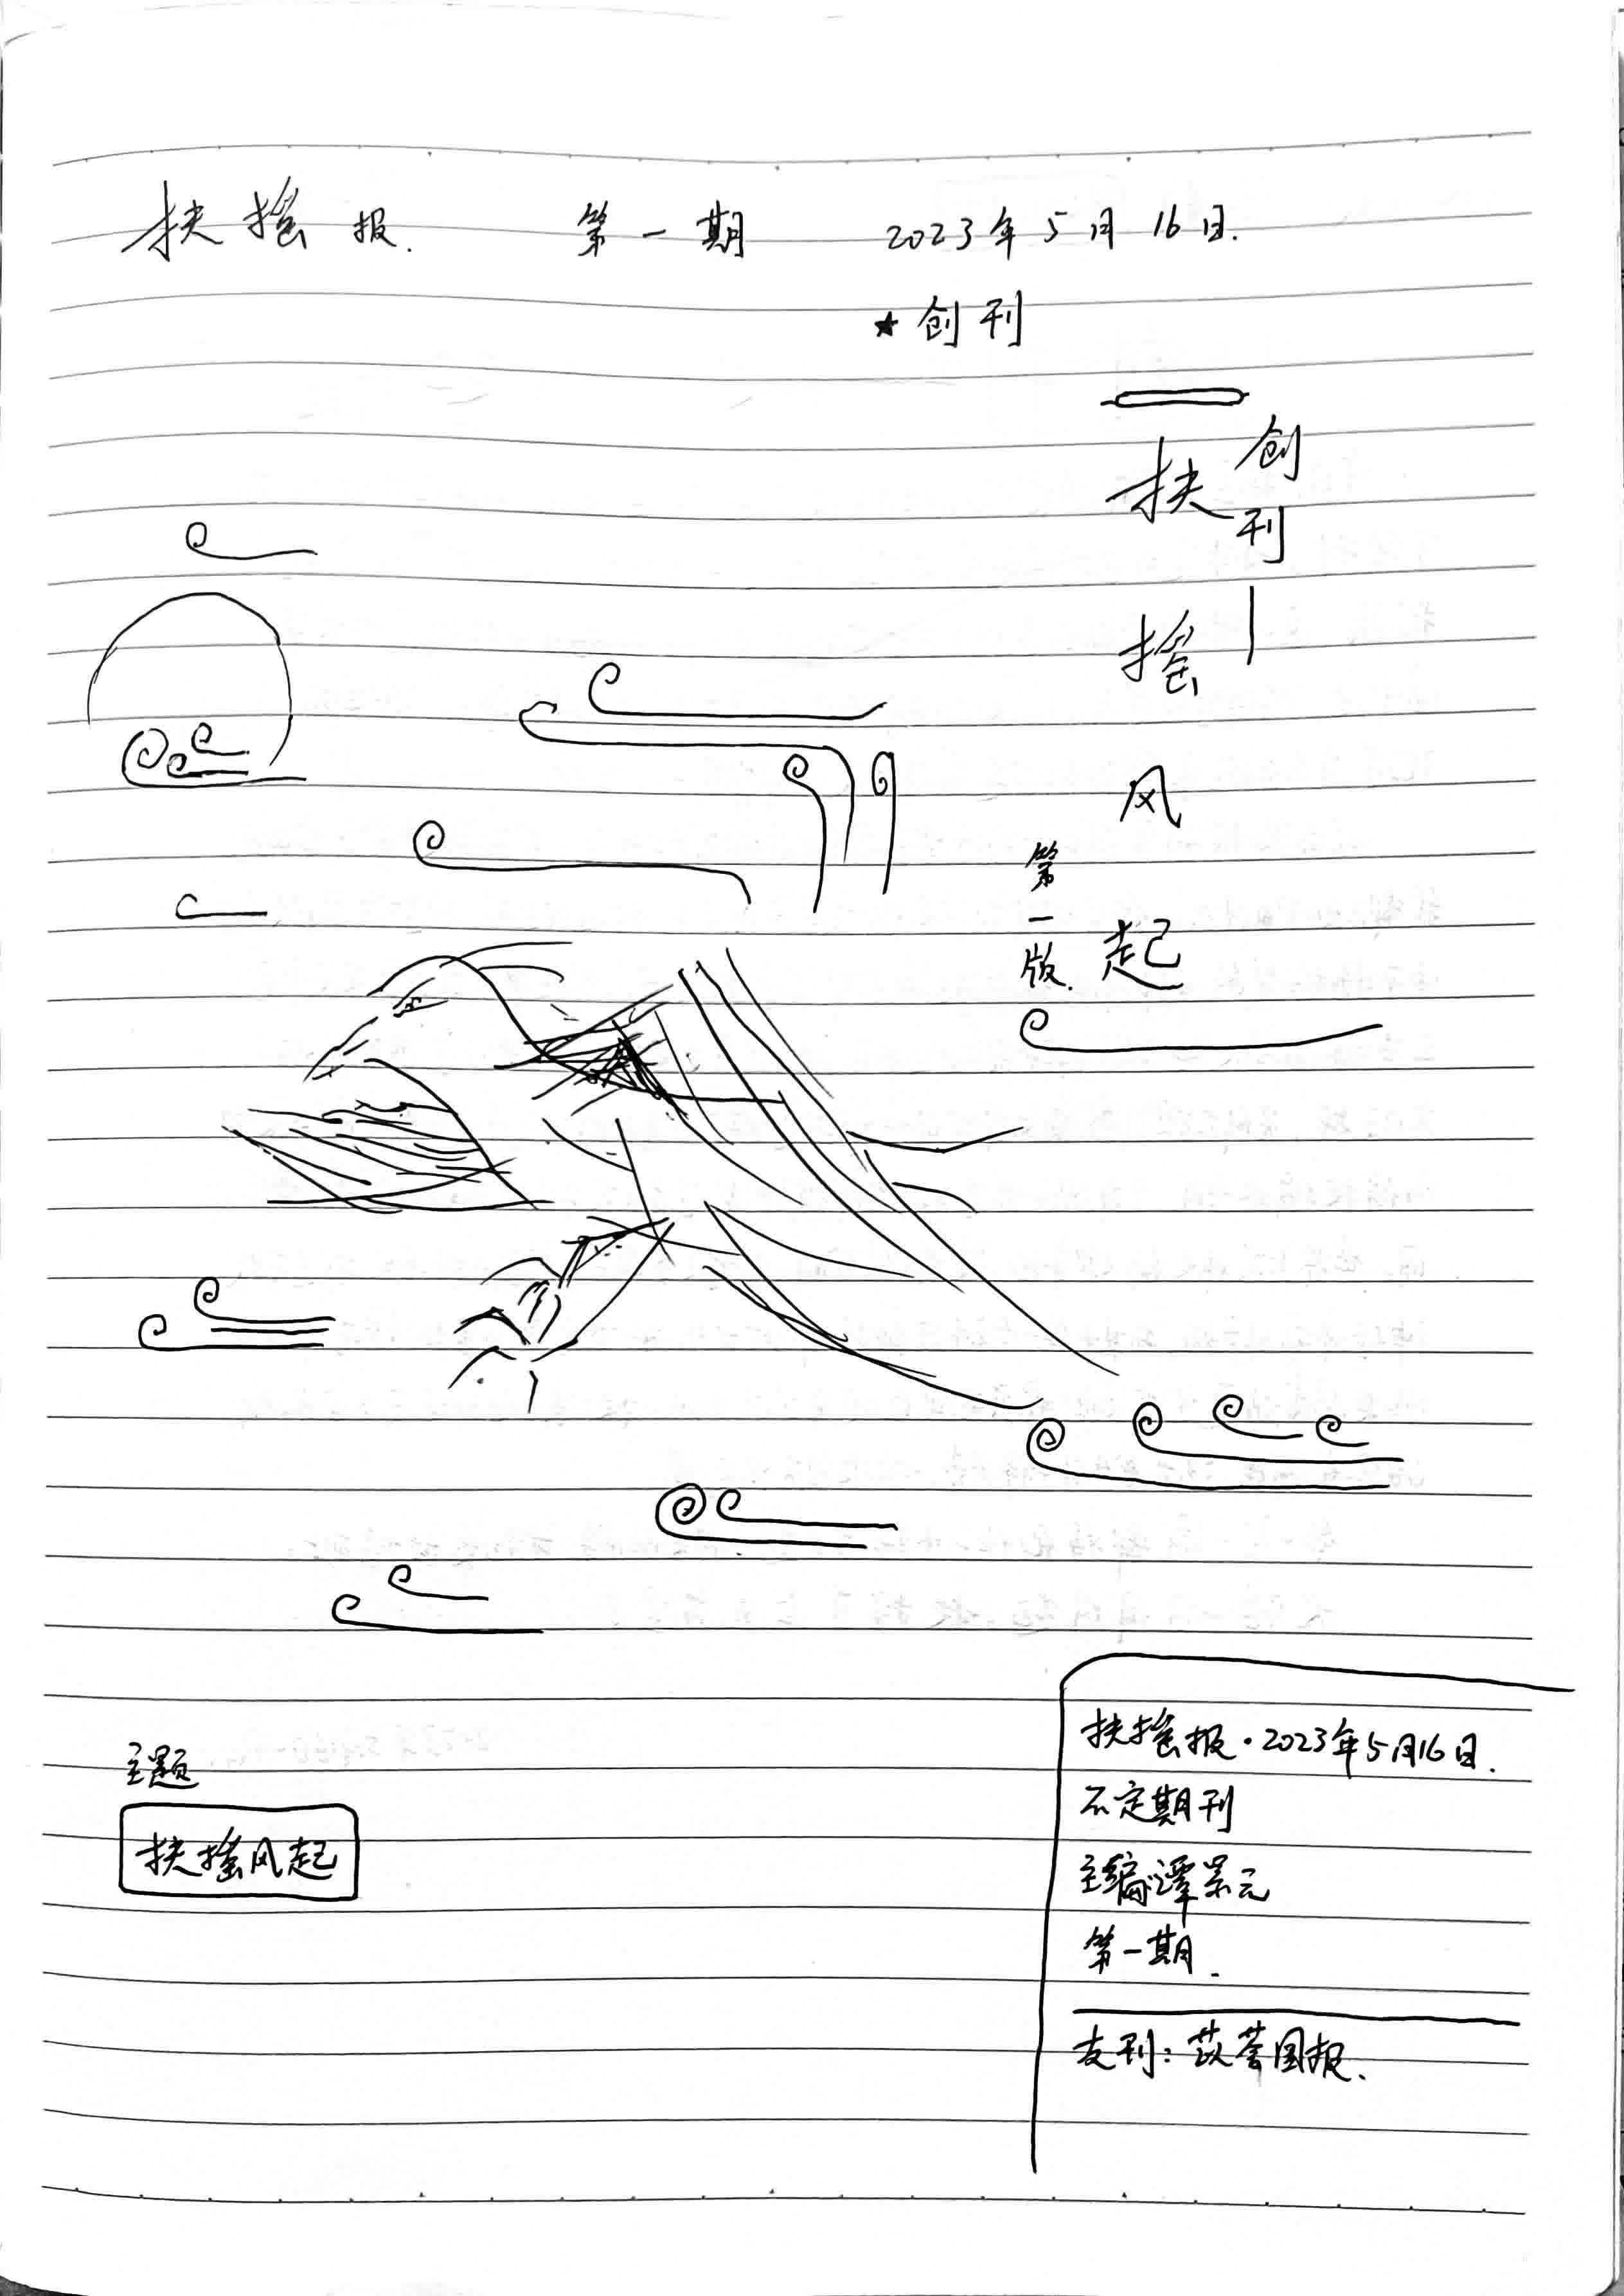 扶摇报. 第一期 2023年5月16日.
★创刊
创刊
扶摇风起
第一版.
主题
扶摇风起
扶摇报·2023年5月16日.
不定期刊
主编:谭景元
第一期.
友刊: